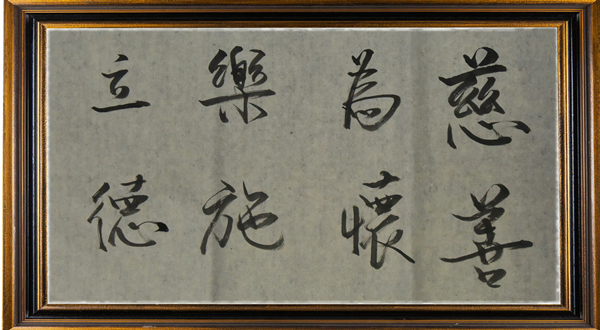 慈善
為懷
樂施
立德